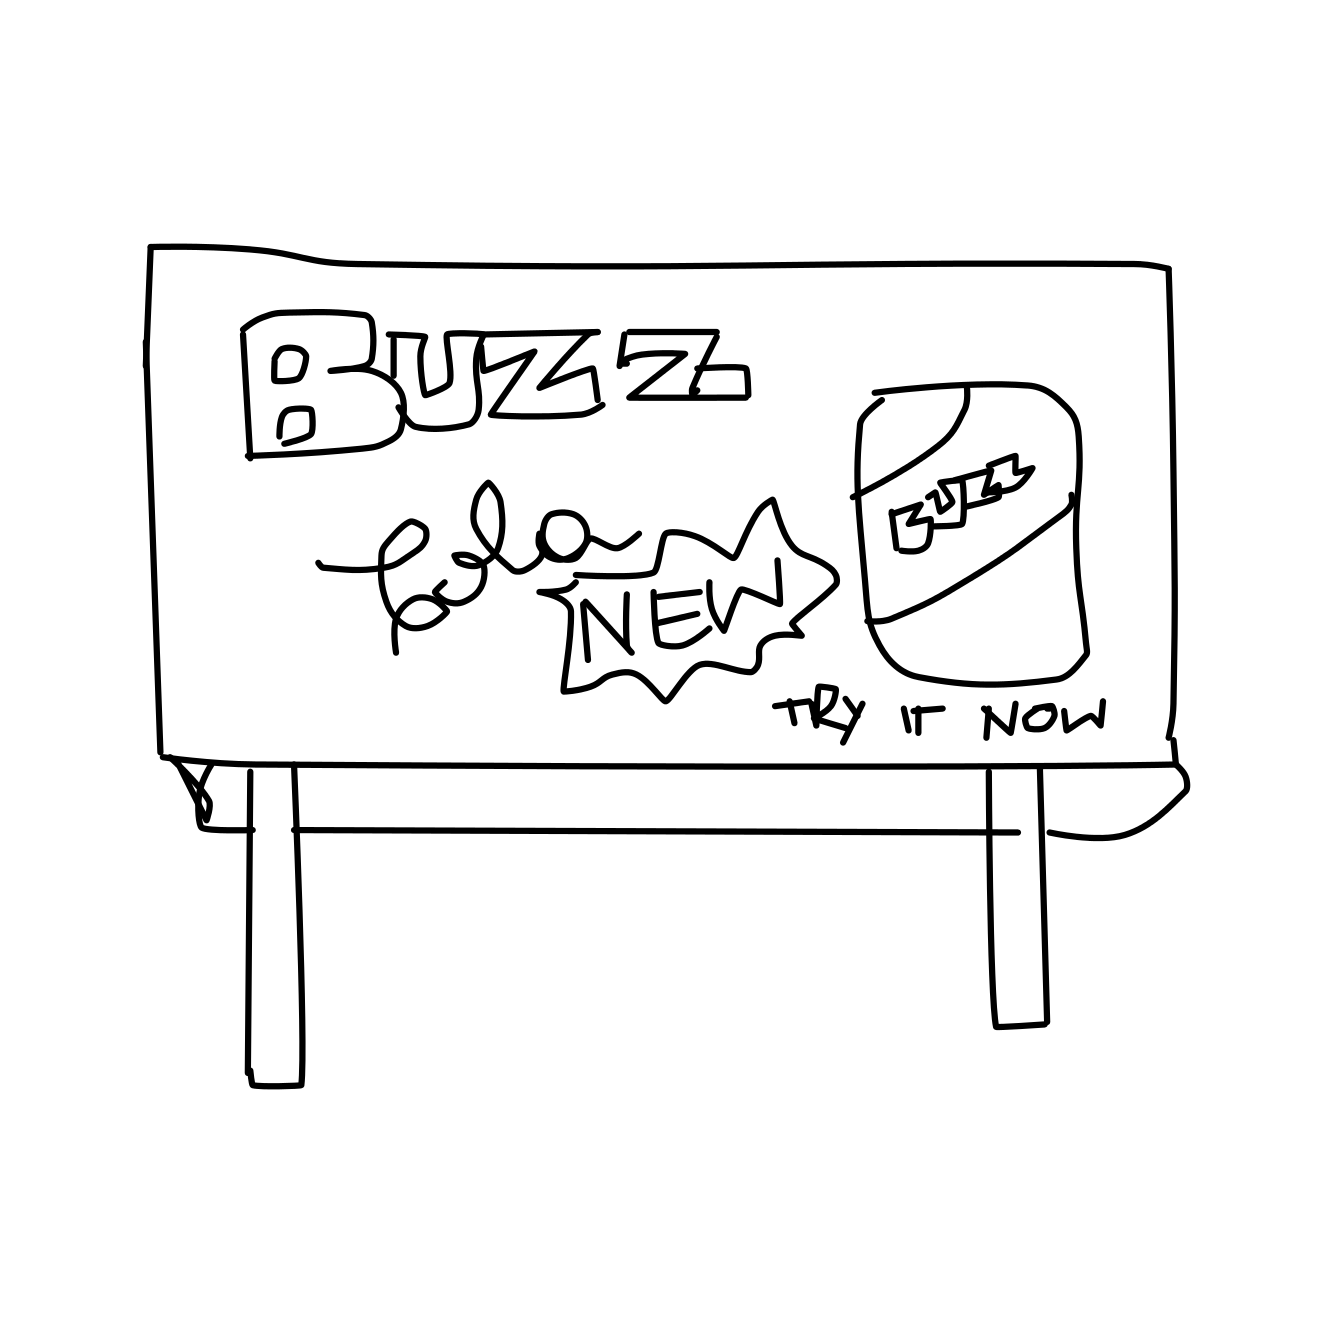 BUZZ
Cola
NEW
TRY IT NOW